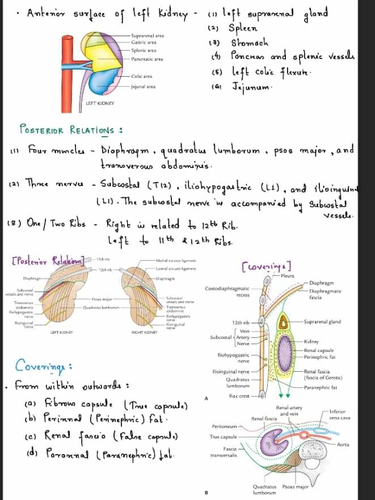 • Anterior surface of left Kidney - (1) left suprarenal gland
(2) Spleen
(3) Stomach
(4) Pancreas and splenic vessels
(5) left colic flexure.
(6) Jejunum.
Suprarenal area
Gastric area
Splenic area
Pancreatic area
Colic area
Jejunal area
LEFT KIDNEY
POSTERIOR RELATIONS :
(1) Four muscles - Diaphragm, quadratus lumborum, psoas major, and
transversus abdominis.
(2) Three nerves - Subcostal (T12), iliohypogastric (L1), and ilioinguinal
(L1). The subcostal nerve is accompanied by Subcostal
vessels.
(3) One/Two Ribs - Right is related to 12th Rib.
left to 11th & 12th Ribs.
[Posterior Relation]
11th rib
12th rib
Medial arcuate ligament
Lateral arcuate ligament
Diaphragm
Diaphragm
Subcostal
vessels and nerve
Transversus
abdominis
Iliohypogastric
nerve
Ilioinguinal
nerve
Psoas major
Quadratus lumborum
Subcostal
vessels and nerve
Transversus
abdominis
Iliohypogastric
nerve
Ilioinguinal
nerve
LEFT KIDNEY
RIGHT KIDNEY
[Coverings]
Pleura
Costodiaphragmatic
recess
Diaphragm
Diaphragmatic
fascia
12th rib
Suprarenal gland
Vein
Subcostal Artery
Nerve
Kidney
Renal capsule
Perinephric fat
Iliohypogastric
nerve
Ilioinguinal nerve
Renal fascia
(fascia of Gerota)
Quadratus
lumborum
Paranephric fat
Iliac crest
A
Coverings :
• From within outwards :
(a) Fibrous capsule (True capsule)
(b) Perirenal (Perinephric) Fat.
(c) Renal fascia (False capsule)
(d) Pararenal (Paranephric) fat.
Renal artery
and vein
Renal fascia
Inferior
vena cava
Peritoneum
True capsule
Aorta
Fascia
transversalis
Quadratus
lumborum
Psoas major
B